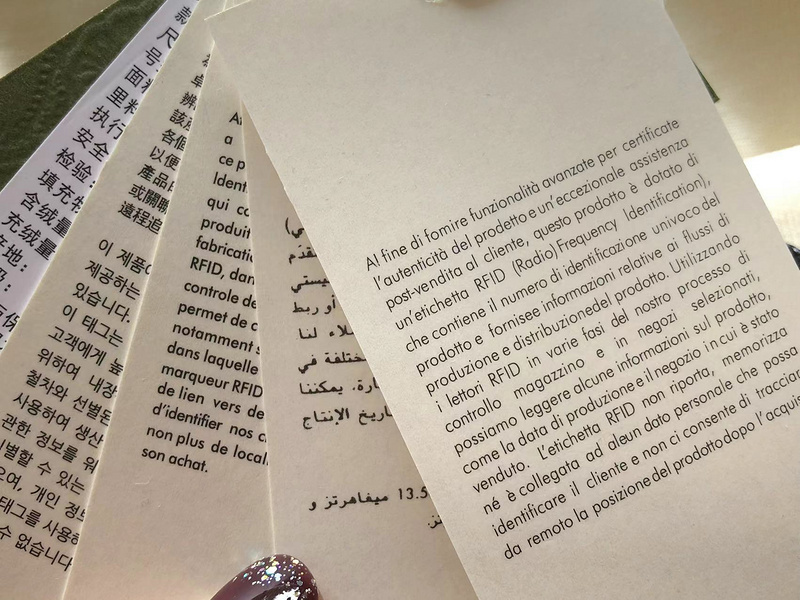 款
尺
号
面料
里料
执行
安全
检验:
填充物
含绒量
充绒量
产地:
卓
辨
該
各個
以便
產品
或關聯
遠程追
이 제품
제공하는
있습니다.
이 태그는
고객에게 높
위하여 내장
철차와 선별된
사용하여 생산
관한 정보를 위
별할 수 있는
으며, 개인 정보
태그를 사용하
수 없습니다
a
ce p
Ident
qui co
produit
fabricati
RFID, dan
controle de
permet de c
notamment s
dans laquelle
marqueur RFID
de lien vers de
d'identifier nos c
non plus de local
son achat.
أو ربط
لاء لنا
ختلفة في
ارة. يمكننا
اريخ الإنتاج
13.5 ميغاهرتز و
Al fine di fornire funzionalità avanzate per certificate
l'autenticità del prodetto e un'eccezionale assistenza
post-vendita al cliente, questo prodotto è dotato di
un'etichetta RFID (Radio)Frequency Identification),
che contiene il numero di identificazione univoco del
prodotto e fornisee informazioni relative ai flussi di
produzione e distribuzionedel prodotto. Utilizzando
i lettori RFID in varie fasi del nostro processo di
controllo magazzino e in negozi selezionati,
possiamo leggere alcune informazioni sul prodotto,
come la data di produzione e il negozio in cui è stato
venduto. L'etichetta RFID non riporta, memorizza
né è collegata ad aleun dato personale che possa
identificare il cliente e non ci consente di tracciar
da remoto la posizione del prodottodopo l'acquis